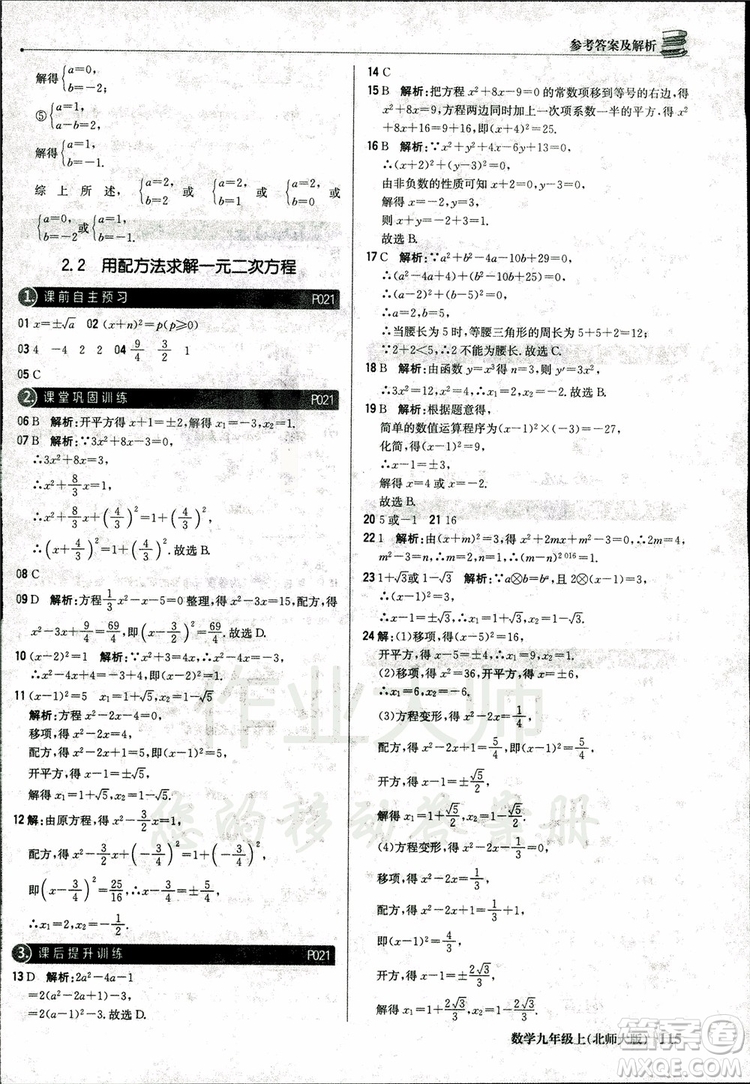 参考答案及解析
解得{a=0, b=-2;
⑤{a+b=2, a-b=2,
解得{a=2, b=0.
综上所述, {a=2, b=2或{a=2, b=0或
{a=0, b=-2或{a=2, b=0.
2.2 用配方法求解一元二次方程
1. 课前自主预习 P021
01 x=±√a 02 (x+n)²=p(p≥0)
03 4 -4 2 2 04 9/4 3/2
05 C
2. 课堂巩固训练 P021
06 B 解析:开平方得x+1=±2,解得x₁=1,x₂=-3.
07 B 解析:∵3x²+8x-3=0,
∴3x²+8x=3,
∴x²+8/3x=1,
∴x²+8/3x+(4/3)²=1+(4/3)²,
∴(x+4/3)²=1+(4/3)².故选B.
08 C
09 D 解析:方程1/3x²-x-5=0整理,得x²-3x=15,配方,得
x²-3x+9/4=69/4,即(x-3/2)²=69/4.故选D.
10 (x-2)²=1 解析:∵x²-4x+3=0,∴x²-4x=-3,
∴x²-4x+4=-3+4,∴(x-2)²=1.
11 (x-1)²=5 x₁=1+√5,x₂=1-√5
解析:方程x²-2x-4=0,
移项,得x²-2x=4,
配方,得x²-2x+1=5,即(x-1)²=5,
开平方,得x-1=±√5.
解得x₁=1+√5,x₂=1-√5.
12 解:由原方程,得x²-3/2x=1,
配方,得x²-3/2x+(-3/4)²=1+(-3/4)²,
即(x-3/4)²=25/16,
∴x₁=2,x₂=-1/2.
3. 课后提升训练 P021
13 D 解析:2a²-4a-1
=2(a²-2a+1)-3,
=2(a-1)²-3.
14 C
15 B 解析:把方程x²+8x-9=0的常数项移到等号的右边,得
x²+8x=9,方程两边同时加上一次项系数一半的平方,得x²+
8x+16=9+16,即(x+4)²=25.
16 B 解析:∵x²+y²+4x-6y+13=0,
∴(x+2)²+(y-3)²=0,
由非负数的性质可知x+2=0,y-3=0,
解得x=-2,y=3,
则x+y=-2+3=1.
故选B.
17 C 解析:∵a²-4a+4+(b-5)²=0,
∴(a-2)²+(b-5)²=0,
∴a=2,b=5,
∴当腰长为5时,等腰三角形的周长为5+5+2=12;
∵2+2<5,∴2不能为腰长.故选C.
18 B 解析:由函数y=x³得n=3,则y′=3x²,
∴3x²=12,x²=4,x=±2,
x₁=2,x₂=-2.故选B.
19 B 解析:根据题意得,
简单的数值运算程序为(x-1)²×(-3)=-9,
化简,得(x-1)²=3,
∴x-1=±√3,
解得x=1±√3.
故选B.
20 5或-1 21 16
22 1 解析:由(x+m)²=3,得x²+2mx+m²-3=0,∴2m=4,
m²-3=n,∴m=2,n=1,∴(m-n)²⁰¹⁶=1.
23 1+√3或1-√3 解析:∵a⊗b=bᵃ,且2⊗(x-1)=3,
∴(x-1)²=3,
∴x-1=±√3,∴x₁=1+√3,x₂=1-√3.
24 解:(1)移项,得(x-5)²=16,
开平方,得x-5=±4,∴x₁=1,x₂=9.
(2)移项,得x²=36,开平方,得x=±6,
∴x₁=6,x₂=-6.
(3)方程变形,得x²-2x=1/4,
配方,得x²-2x+1=5/4,即(x-1)²=5/4,
开方,得x-1=±√5/2,
解得x₁=1+√5/2,x₂=1-√5/2.
(4)方程变形,得x²-2x-1/3=0,
移项,得x²-2x=1/3,
配方,得x²-2x+1=4/3,即(x-1)²=4/3,
开方,得x-1=±2√3/3,
解得x₁=1+2√3/3,x₂=1-2√3/3.
数学九年级上(北师大版) 115
作业大师
您的移动答案册
答案圈
MXQE.COM